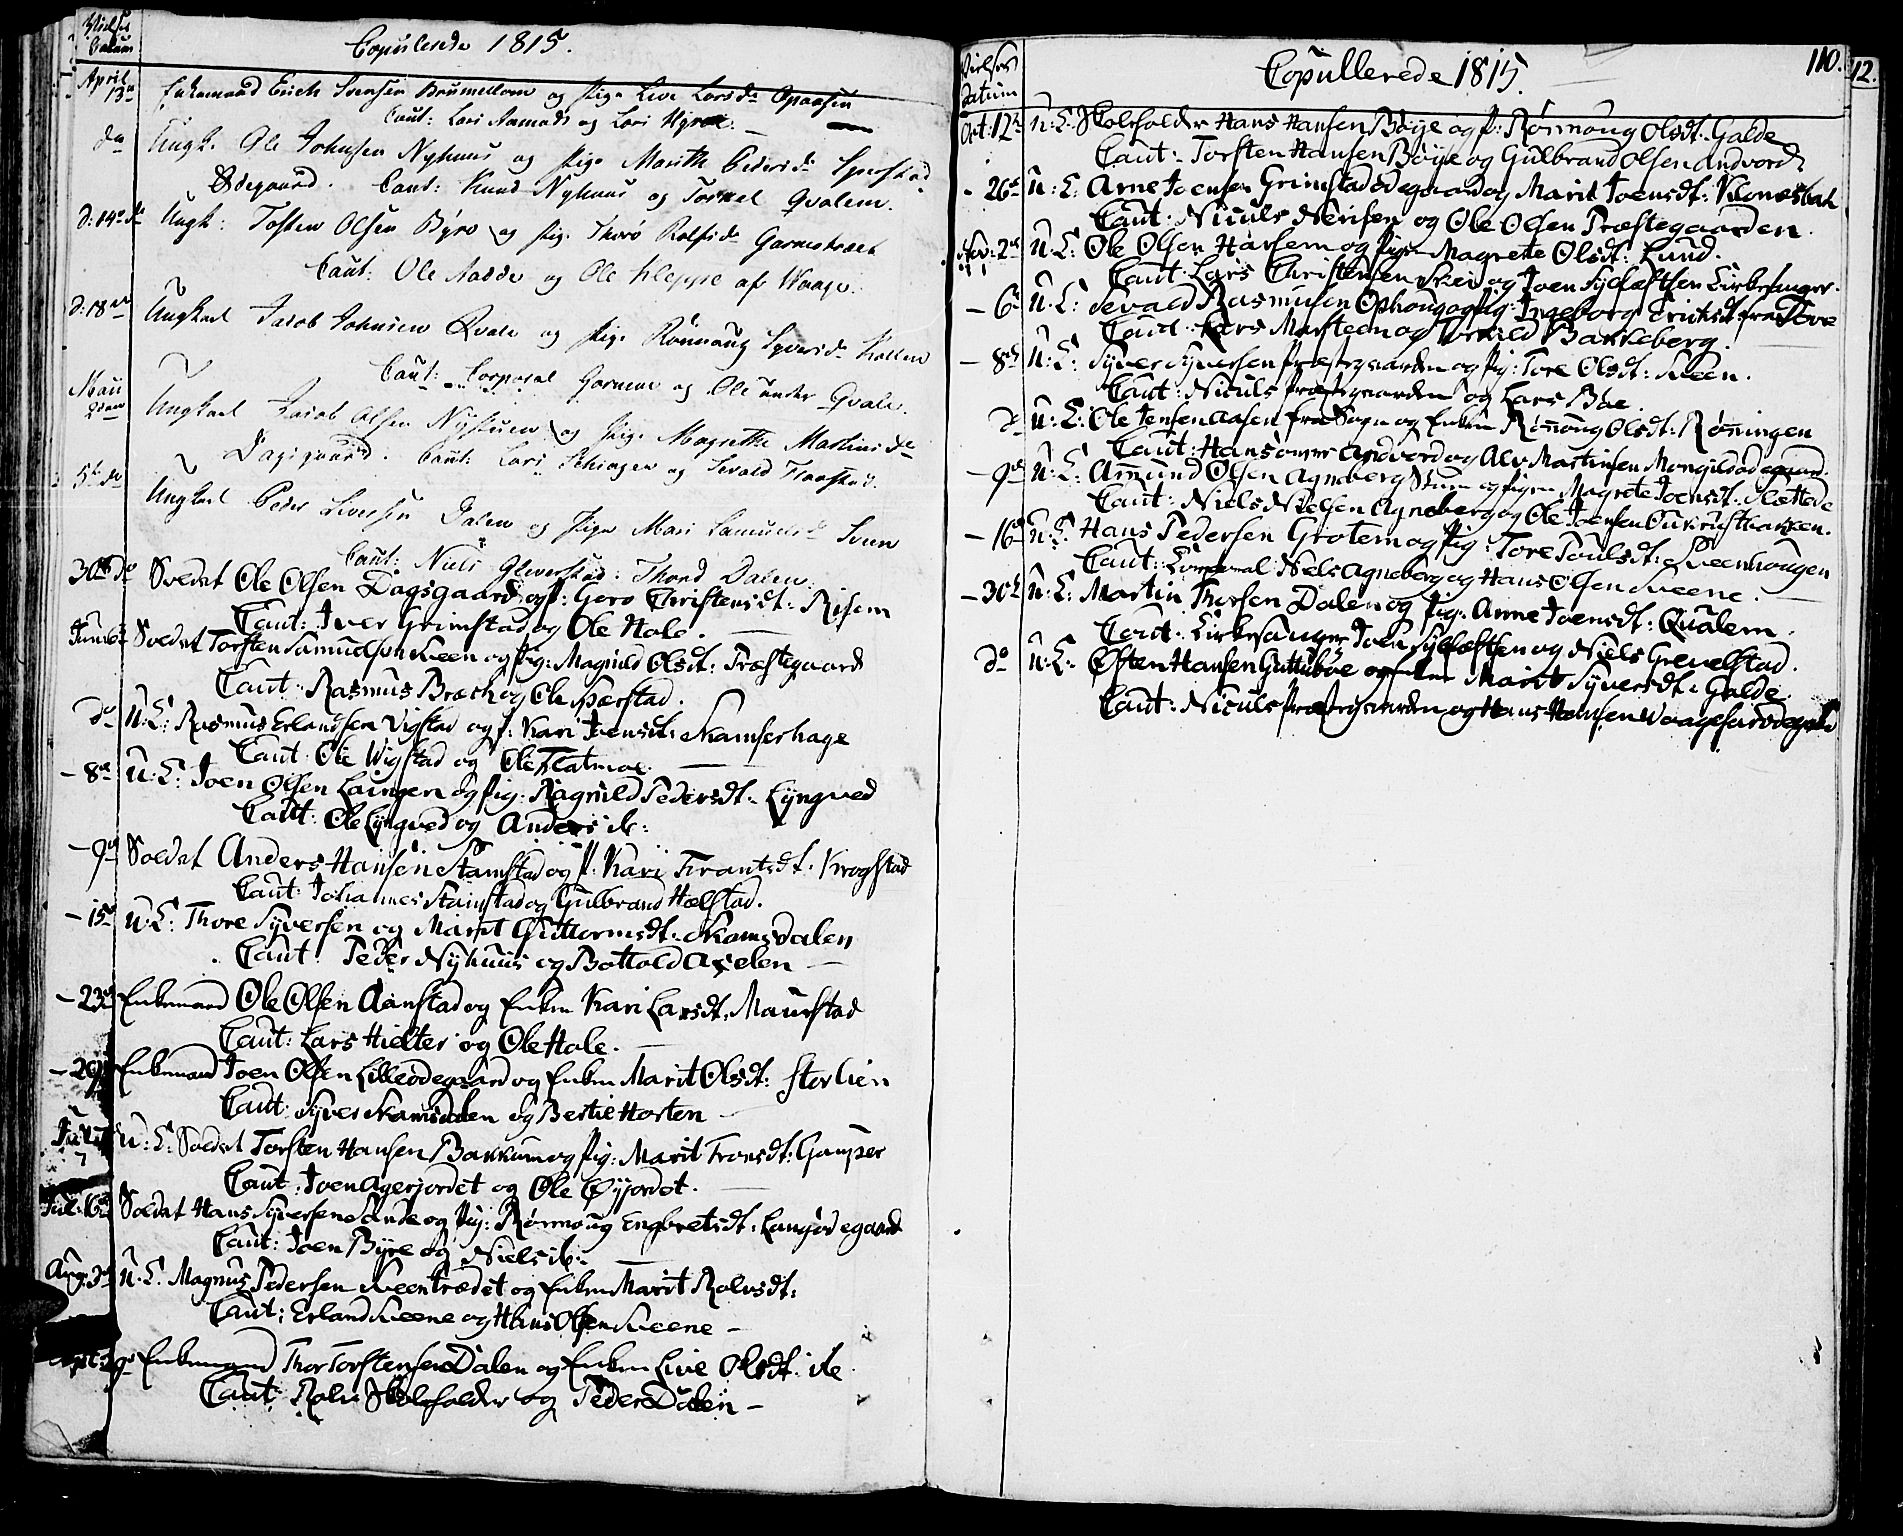 Vielses Datum
Copulerede 1815.
April 13de Enkemand Erich Iversen Brumillom og Pige Live Larsdr Opaasen
Caut: Lars Aamodt og Lars
do Ungk. Ole Johnsen Nyhuus og Pige Marith Pedersdr
Ødegaard. Caut: Knud Nyhuus og Qvalem.
d: 14de do Ungk: Tosten Olsen Byre og Pige Thorø Rolfsdr
Caut: Ole Aasde og Ole Kleppe af Waage.
d: 18de Ungkarl Jacob Johnsen Qvale og Pige Rönnaug Syversdr
Caut: Corporal og Ole Qvale.
Maii Ungkarl Jacob Olsen Nystuen og Pige Magrethe Martinsdr
Dagsgaard. Caut: Lars og Sevald
5te do Ungkarl Peder Iversen Dalen og Pige Mari Samuelsdr Sveen
Caut: Niels Gleverstad. Thord Dalen.
30te do Soldat Ole Olsen Dagsgaard og P: Gerø Christensdt: Risem
Caut: Iver Grimstad og Ole Hole.
Soldat Torsten Samuelsen Sveen og Pig: Magnild Olsdt: Præstegaard
Caut: Rasmus Bræk og Ole Sperstad.
do U:C: Rasmus Erlandsen Vigstad og P: Kari Joensdt: Skamserhage
Caut: Ole Wigstad og Ole Flatmoe.
- 8de U:C: Joen Olsen Laingen og Pig: Ragnild Pedersdt: Lyngved
Caut: Ole Lyngved og Anders ib:
- 9de Soldat Anders Hansen Stamstad og P: Kari Frantsdt: Krogstad
Caut: Johannes Stamstad og Gulbrand Hælstad.
- 15de U:C: Thore Syversen og Marit Guttormsdt: Skamsdalen
Caut: Peder Nyhuus og Bottold Aaselen
- 23de Enkemand Ole Olsen Aanstad og Enken Kari Larsdt: Maurstad
Caut: Lars Hielter og Ole Hole.
- 29de Enkemand Joen Olsen Lilleødegaard og Enken Marit Olsdt: Storlien
Caut: Syver Skamsdalen og Bertil Horten
U:C: Soldat Torsten Hansen Bakkum og Pig: Marit Tronsdt: Gauper
Caut: Joen Agerjordet og Ole Øyjordet.
Jul: Soldat Hans Syversen Sande og Pig: Rønnoug Engbretsdt: Langødegaard
Caut: Joen Byre og Niels ib:
Aug: U:C: Magnus Pedersen Sveentrædet og Enken Marit Rolvsdt:
Caut: Erland Sveene og Hans Olsen Sveene
Enkemand Thor Torstensen Dalen og Enken Live Olsdt: ibe
Caut: Rolv Skoleholder og Peder Dalen
Vielses datum
Copullerede 1815.
110.
12.
Oct: 12te U:C: Skoleholder Hans Hansen Bøye og P: Rønnoug Olsdt: Galde
Caut: Torsten Hansen Bøye og Gulbrand Olsen Andvord
- 26de U:C: Arne Joensen Grimstadødegaard og Marit Joensdt: Klonesbak
Caut: Niculs og Ole Olsen Præstegaarden.
Nov: 2de U:C: Ole Olsen Harsem og Pigen Magrete Olsdt: Lund.
Caut: Lars Christensen Skei og Joen Sylfæstsen Kirkesanger.
- 6te U:C: Sevald Rasmusen Ophoug og Pig: Ingeborg Erichsdt fra
Caut: Lars Marsteen og Torkild Bakkeberg.
- 8de U:C: Syver Syversen Præstegaarden og Pig: Tore Olsdt: Sveen.
Caut: Niculs Præstegaarden og Lars Bøe.
do U:C: Ole Jensen Aasen fra Sogn og Enken Rønnoug Olsdt: Rønningen
Caut: Hans Andvord og Alv Martinsen Mongilsødegaard.
9de U:C: Amund Olsen Agneberg Stuen og Pigen Magrete Joensdt: Slettede
Caut: Niels Nielsen Agneberg og Ole Joensen
- 16de U:C: Hans Pedersen Grotem og Pig: Tore Poulsdt: Sveenhougen
Caut: Corporal Niels Agneberg og Hans Olsen Sveene.
- 30te U:C: Martin Thorsen Dalen og Pig: Anne Joensdt: Qualem.
Caut: Kirkesanger Joen Sylfæstsen og Niels Grevelstad.
do U:C: Østen Hansen Guttubøe og Enken Marit Syversdt: Galde
Caut: Niculs Præstegaarden og Hans Hansen